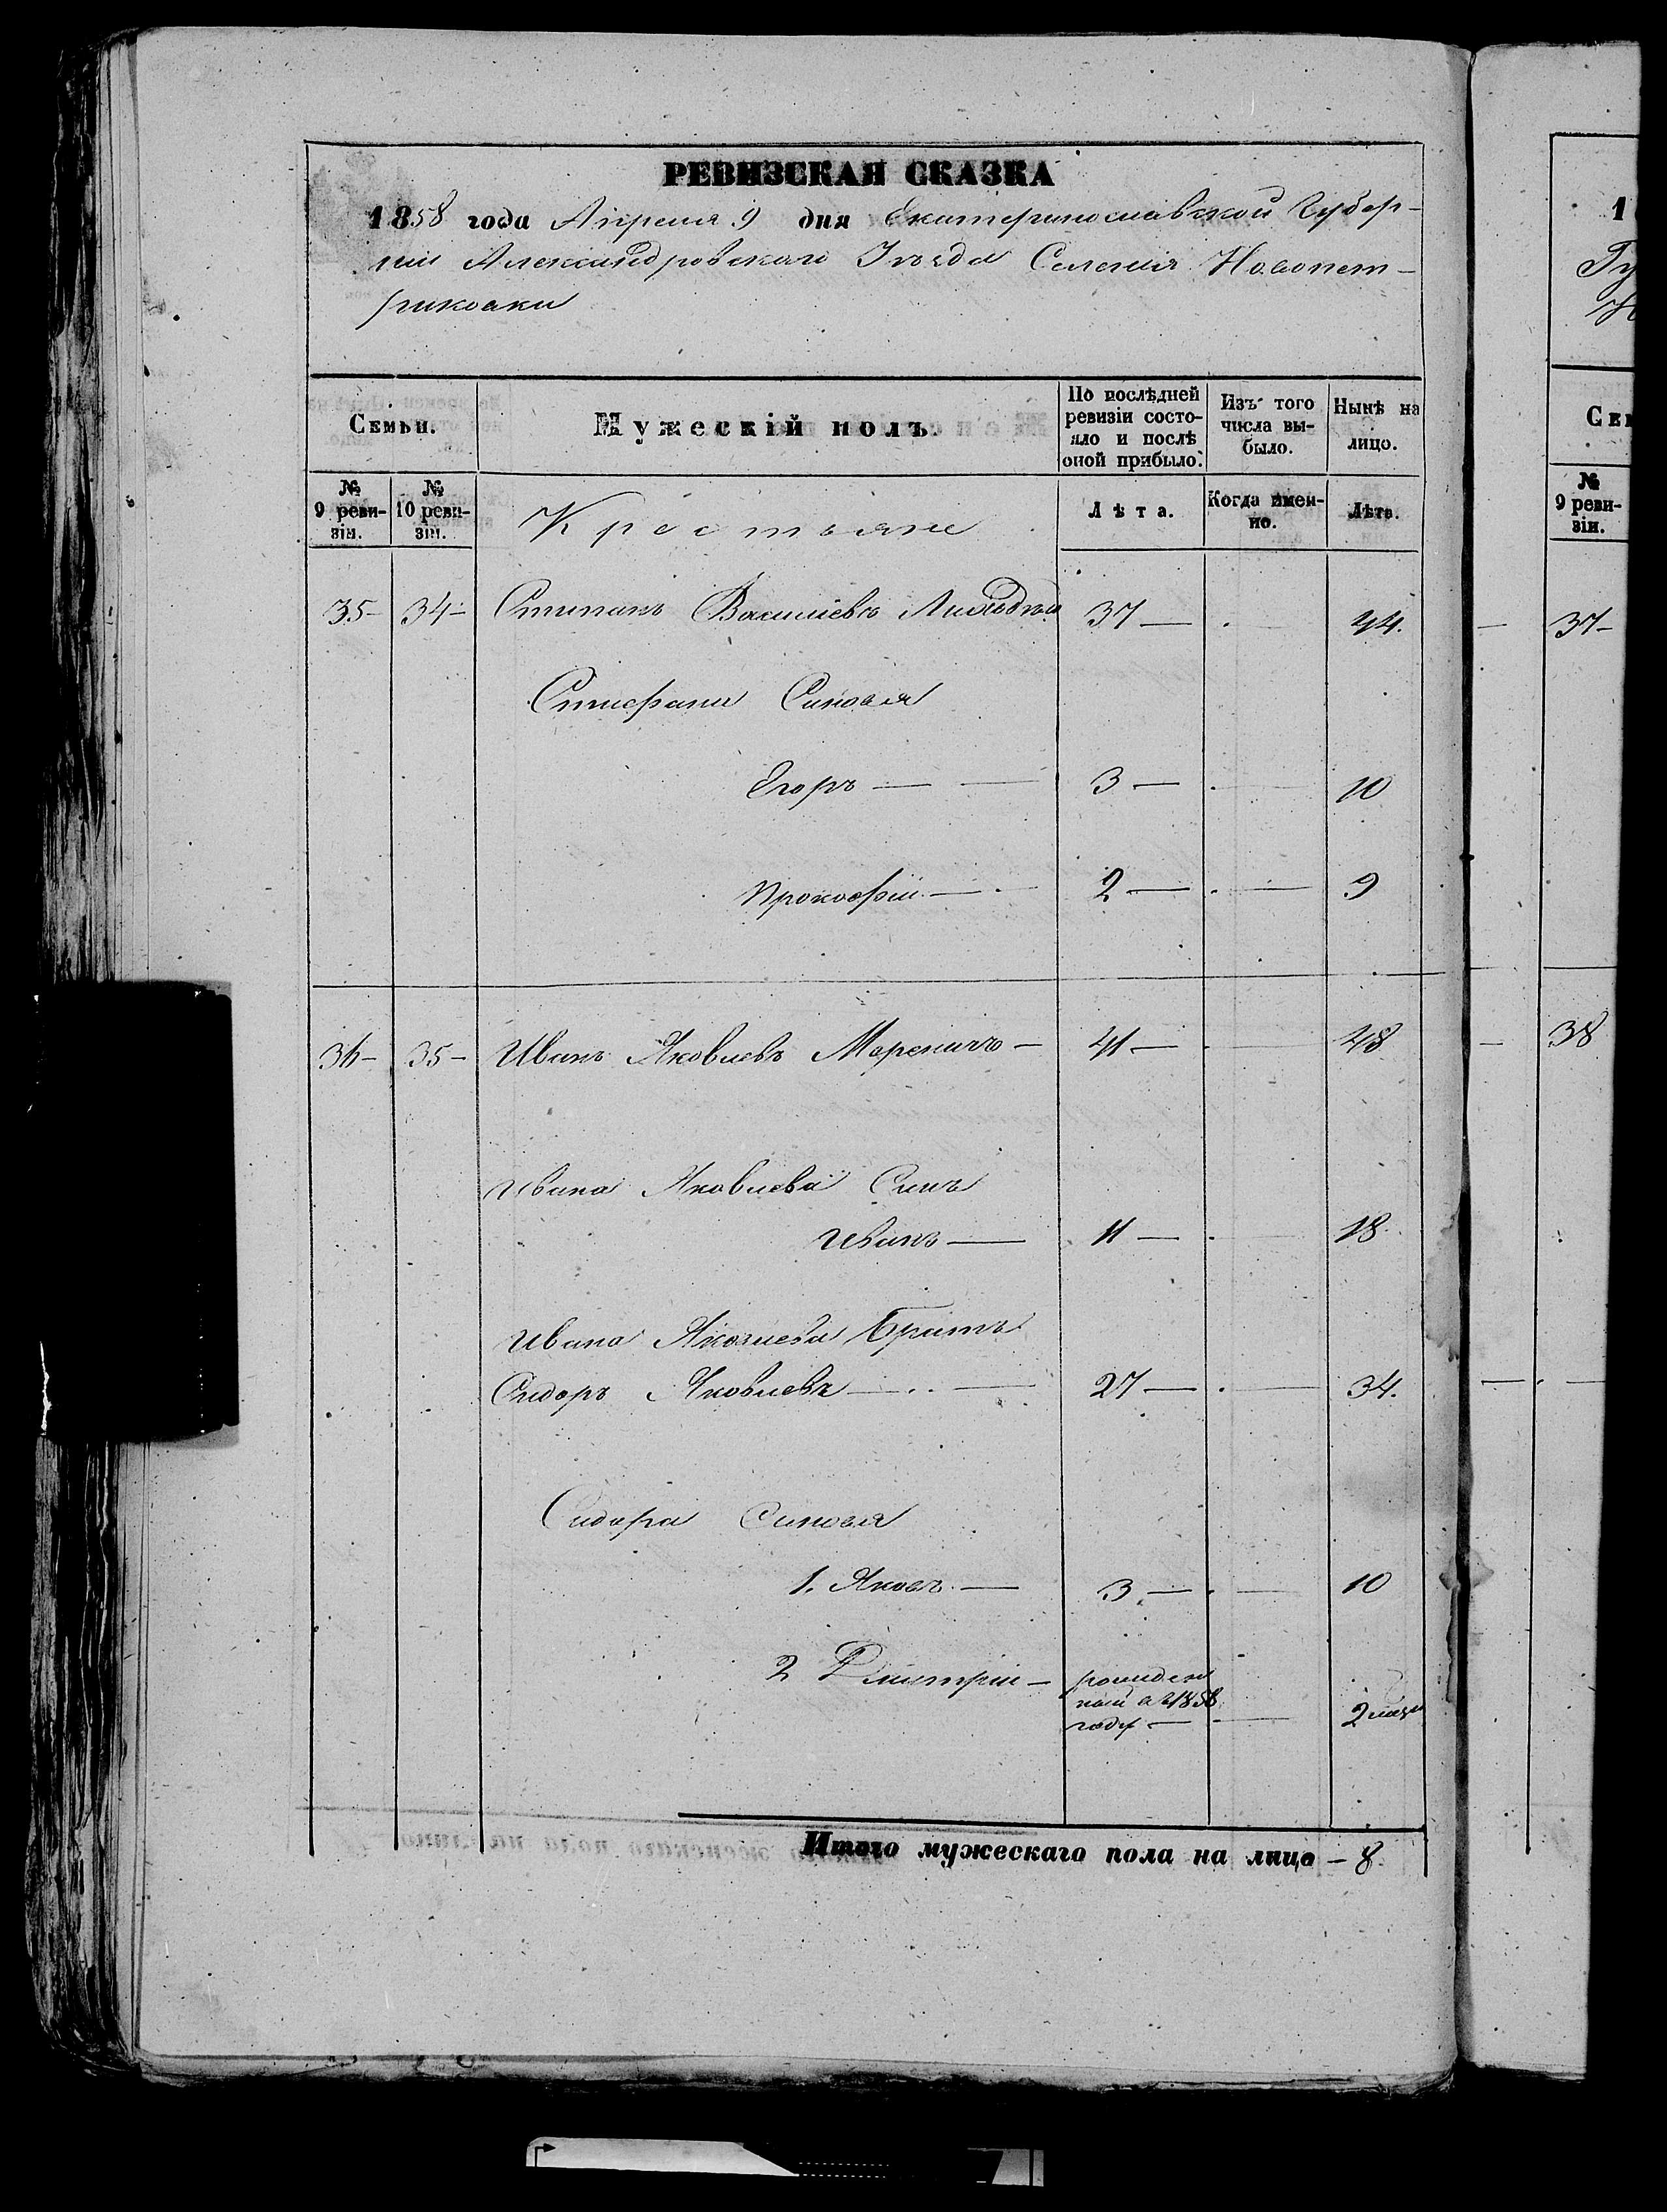 РЕВИЗСКАЯ СКАЗКА
1858 года Апреля 9 дня Екатеринославской Губер-
ніи Александровскаго Уѣзда Селенія Новопет-
риковки
Семьи.
Мужескій полъ.
По послѣдней ревизіи состояло и послѣ оной прибыло.
Изъ того числа выбыло.
Нынѣ на лицо.
№ 9 ревизіи.
№ 10 ревизіи.
Крестьяне
Лѣта.
Когда именно.
Лѣта.
35 - 34 - Стипанъ Василіевъ 37 — 44.
Стиефана Синовья
Егоръ — — 3 — 10
Прокофій — 2 — 9
36 - 35 - Иванъ Яковлевъ Мареничъ — 41 — 48
Ивана Яковлева Синъ
Иванъ — 11 — 18
Ивана Яковлева Братъ
Сидоръ Яковлевъ — 27 — 34.
Сидора Синовья
1. Яковъ — 3 — 10
2 Дмитрій — рожден
ный въ 1858
году — 2 мѣся
Итого мужескаго пола на лицо — 8
1
Гу
Н
Сем
№ 9 ревизіи.
37 -
38